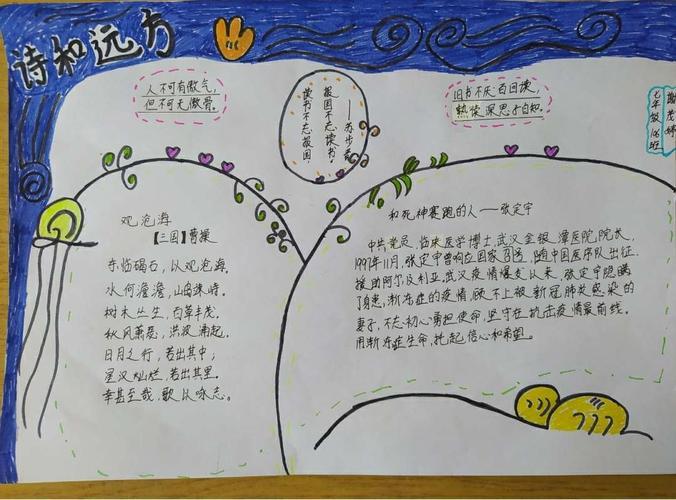 诗和远方
人不可有傲气，
但不可无傲骨。
读书不忘报国，
报国不忘读书。
——苏步青
旧书不厌百回读，
熟读深思子自知。
七年级106班
观沧海
【三国】曹操
东临碣石，以观沧海。
水何澹澹，山岛竦峙。
树木丛生，百草丰茂。
秋风萧瑟，洪波涌起。
日月之行，若出其中；
星汉灿烂，若出其里。
幸甚至哉，歌以咏志。
和死神赛跑的人——张定宇
中共党员，临床医学博士，武汉金银潭医院，院长，
1997年11月，张定宇曾响应国家召唤，随中国医疗队出征，
援助阿尔及利亚。武汉疫情爆发以来，张定宇隐瞒
了身患，渐冻症的疫情，顾不上被新冠肺炎感染的
妻子，不忘初心勇担使命，坚守在抗击疫情最前线。
用渐冻症生命，托起信心和希望。